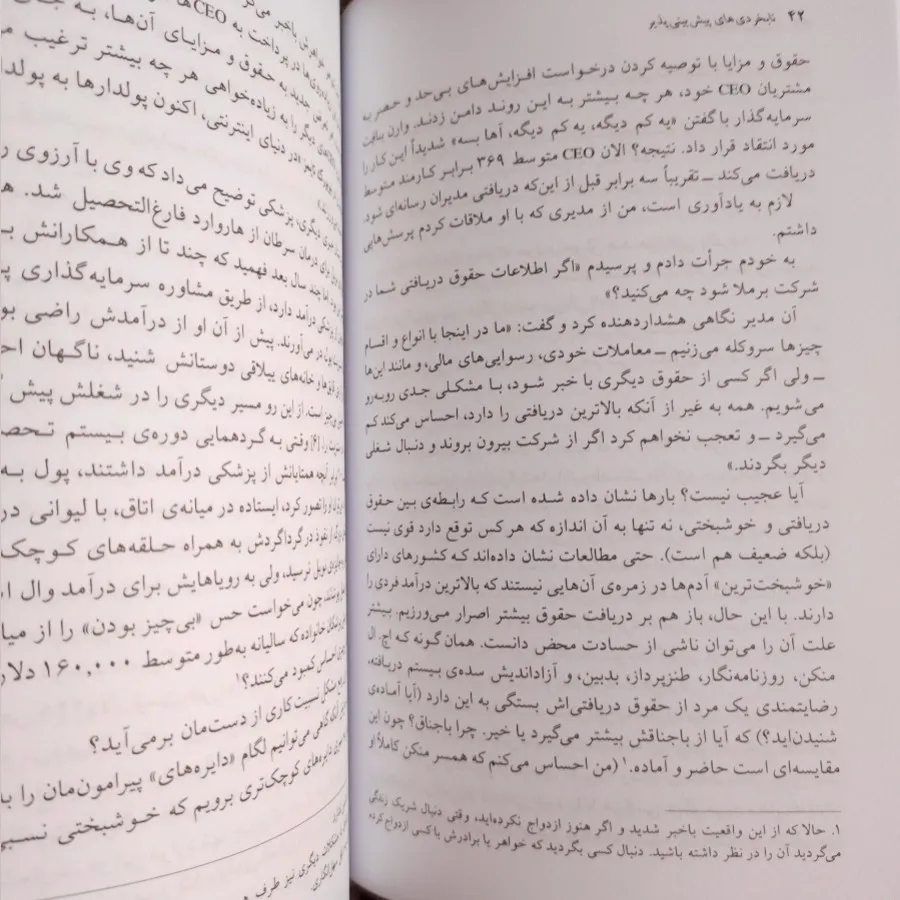 ۴۲ نابخردی های پیش بینی پذیر
حقوق و مزایا با توصیه کردن درخواست افزایش‌های بی‌حد و حصر به
مشتریان CEO خود، هر چه بیشتر به این روند دامن زدند. وارن بافت
سرمایه‌گذار با گفتن «یه کم دیگه، یه کم دیگه، آها بسه» شدیداً این کار را
مورد انتقاد قرار داد. نتیجه؟ الان CEO متوسط ۳۶۹ برابر کارمند متوسط
دریافت می‌کند ــ تقریباً سه برابر قبل از این‌که دریافتی مدیران رسانه‌ای شود.
لازم به یادآوری است، من از مدیری که با او ملاقات کردم پرسش‌هایی
داشتم.
به خودم جرأت دادم و پرسیدم «اگر اطلاعات حقوق دریافتی شما در
شرکت برملا شود چه می‌کنید؟»
آن مدیر نگاهی هشداردهنده کرد و گفت: «ما در اینجا با انواع و اقسام
چیزها سروکله می‌زنیم ــ معاملات خودی، رسوایی‌های مالی، و مانند این‌ها
ــ ولی اگر کسی از حقوق دیگری با خبر شود، با مشکلی جدی روبه‌رو
می‌شویم. همه به غیر از آنکه بالاترین دریافتی را دارد، احساس می‌کند کم
می‌گیرد ــ و تعجب نخواهم کرد اگر از شرکت بیرون بروند و دنبال شغلی
دیگر بگردند.»
آیا عجیب نیست؟ بارها نشان داده شده است که رابطه‌ی بین حقوق
دریافتی و خوشبختی، نه تنها به آن اندازه که هر کس توقع دارد قوی نیست
(بلکه ضعیف هم است). حتی مطالعات نشان داده‌اند که کشورهای دارای
«خوشبخت‌ترین» آدم‌ها در زمره‌ی آن‌هایی نیستند که بالاترین درآمد فردی را
دارند. با این حال، باز هم بر دریافت حقوق بیشتر اصرار می‌ورزیم. بیشتر
علت آن را می‌توان ناشی از حسادت محض دانست. همان گونه که اچ. ال
منکن، روزنامه‌نگار، طنزپرداز، بدبین، و آزاداندیش سده‌ی بیستم دریافته،
رضایتمندی یک مرد از حقوق دریافتی‌اش بستگی به این دارد (آیا آماده‌ی
شنیدن‌اید؟) که آیا از باجناقش بیشتر می‌گیرد یا خیر. چرا باجناق؟ چون این
مقایسه‌ای است حاضر و آماده.۱ (من احساس می‌کنم که همسر منکن کاملاً او
۱. حالا که از این واقعیت باخبر شدید و اگر هنوز ازدواج نکرده‌اید، وقتی دنبال شریک زندگی
می‌گردید آن را در نظر داشته باشید. دنبال کسی بگردید که خواهر یا برادرش با کسی ازدواج کرده
در پرداخت به CEOها
حقوق و مزایای آن‌ها، به جای
دیگر را به زیاده‌خواهی هر چه بیشتر ترغیب
در دنیای اینترنتی، اکنون پولدارها به پولدار
دیگری، پزشکی توضیح می‌داد که وی با آرزوی
برای درمان سرطان از هاروارد فارغ‌التحصیل شد.
چند سال بعد فهمید که چند تا از همکارانش
درآمد دارد، از طریق مشاوره سرمایه‌گذاری
در می‌آورند. پیش از آن او از درآمدش راضی
و خانه‌های ییلاقی دوستانش شنید، ناگهان
است. از این رو مسیر دیگری را در شغلش پیش
[۶] وقتی به گردهمایی دوره‌ی بیستم
آنچه همتایانش از پزشکی درآمد داشتند، پول
او را تصور کرد، ایستاده در میانه‌ی اتاق، با لیوانی در
از نفوذ در گرداگردش به همراه حلقه‌های کوچک
نوبل نرسید، ولی به رویاهایش برای درآمد وال
چون می‌خواست حس «بی‌چیز بودن» را از
خانواده که سالیانه به‌طور متوسط ۱۶۰,۰۰۰ دلار
احساس کمبود می‌کنند؟۱
مشکل نسبیت کاری از دست‌مان برمی‌آید؟
آنکه گاهی می‌توانیم لگام «دایره‌های» پیرامون‌مان را
دایره‌های کوچک‌تری برویم که خوشبختی
دیگری نیز طرف